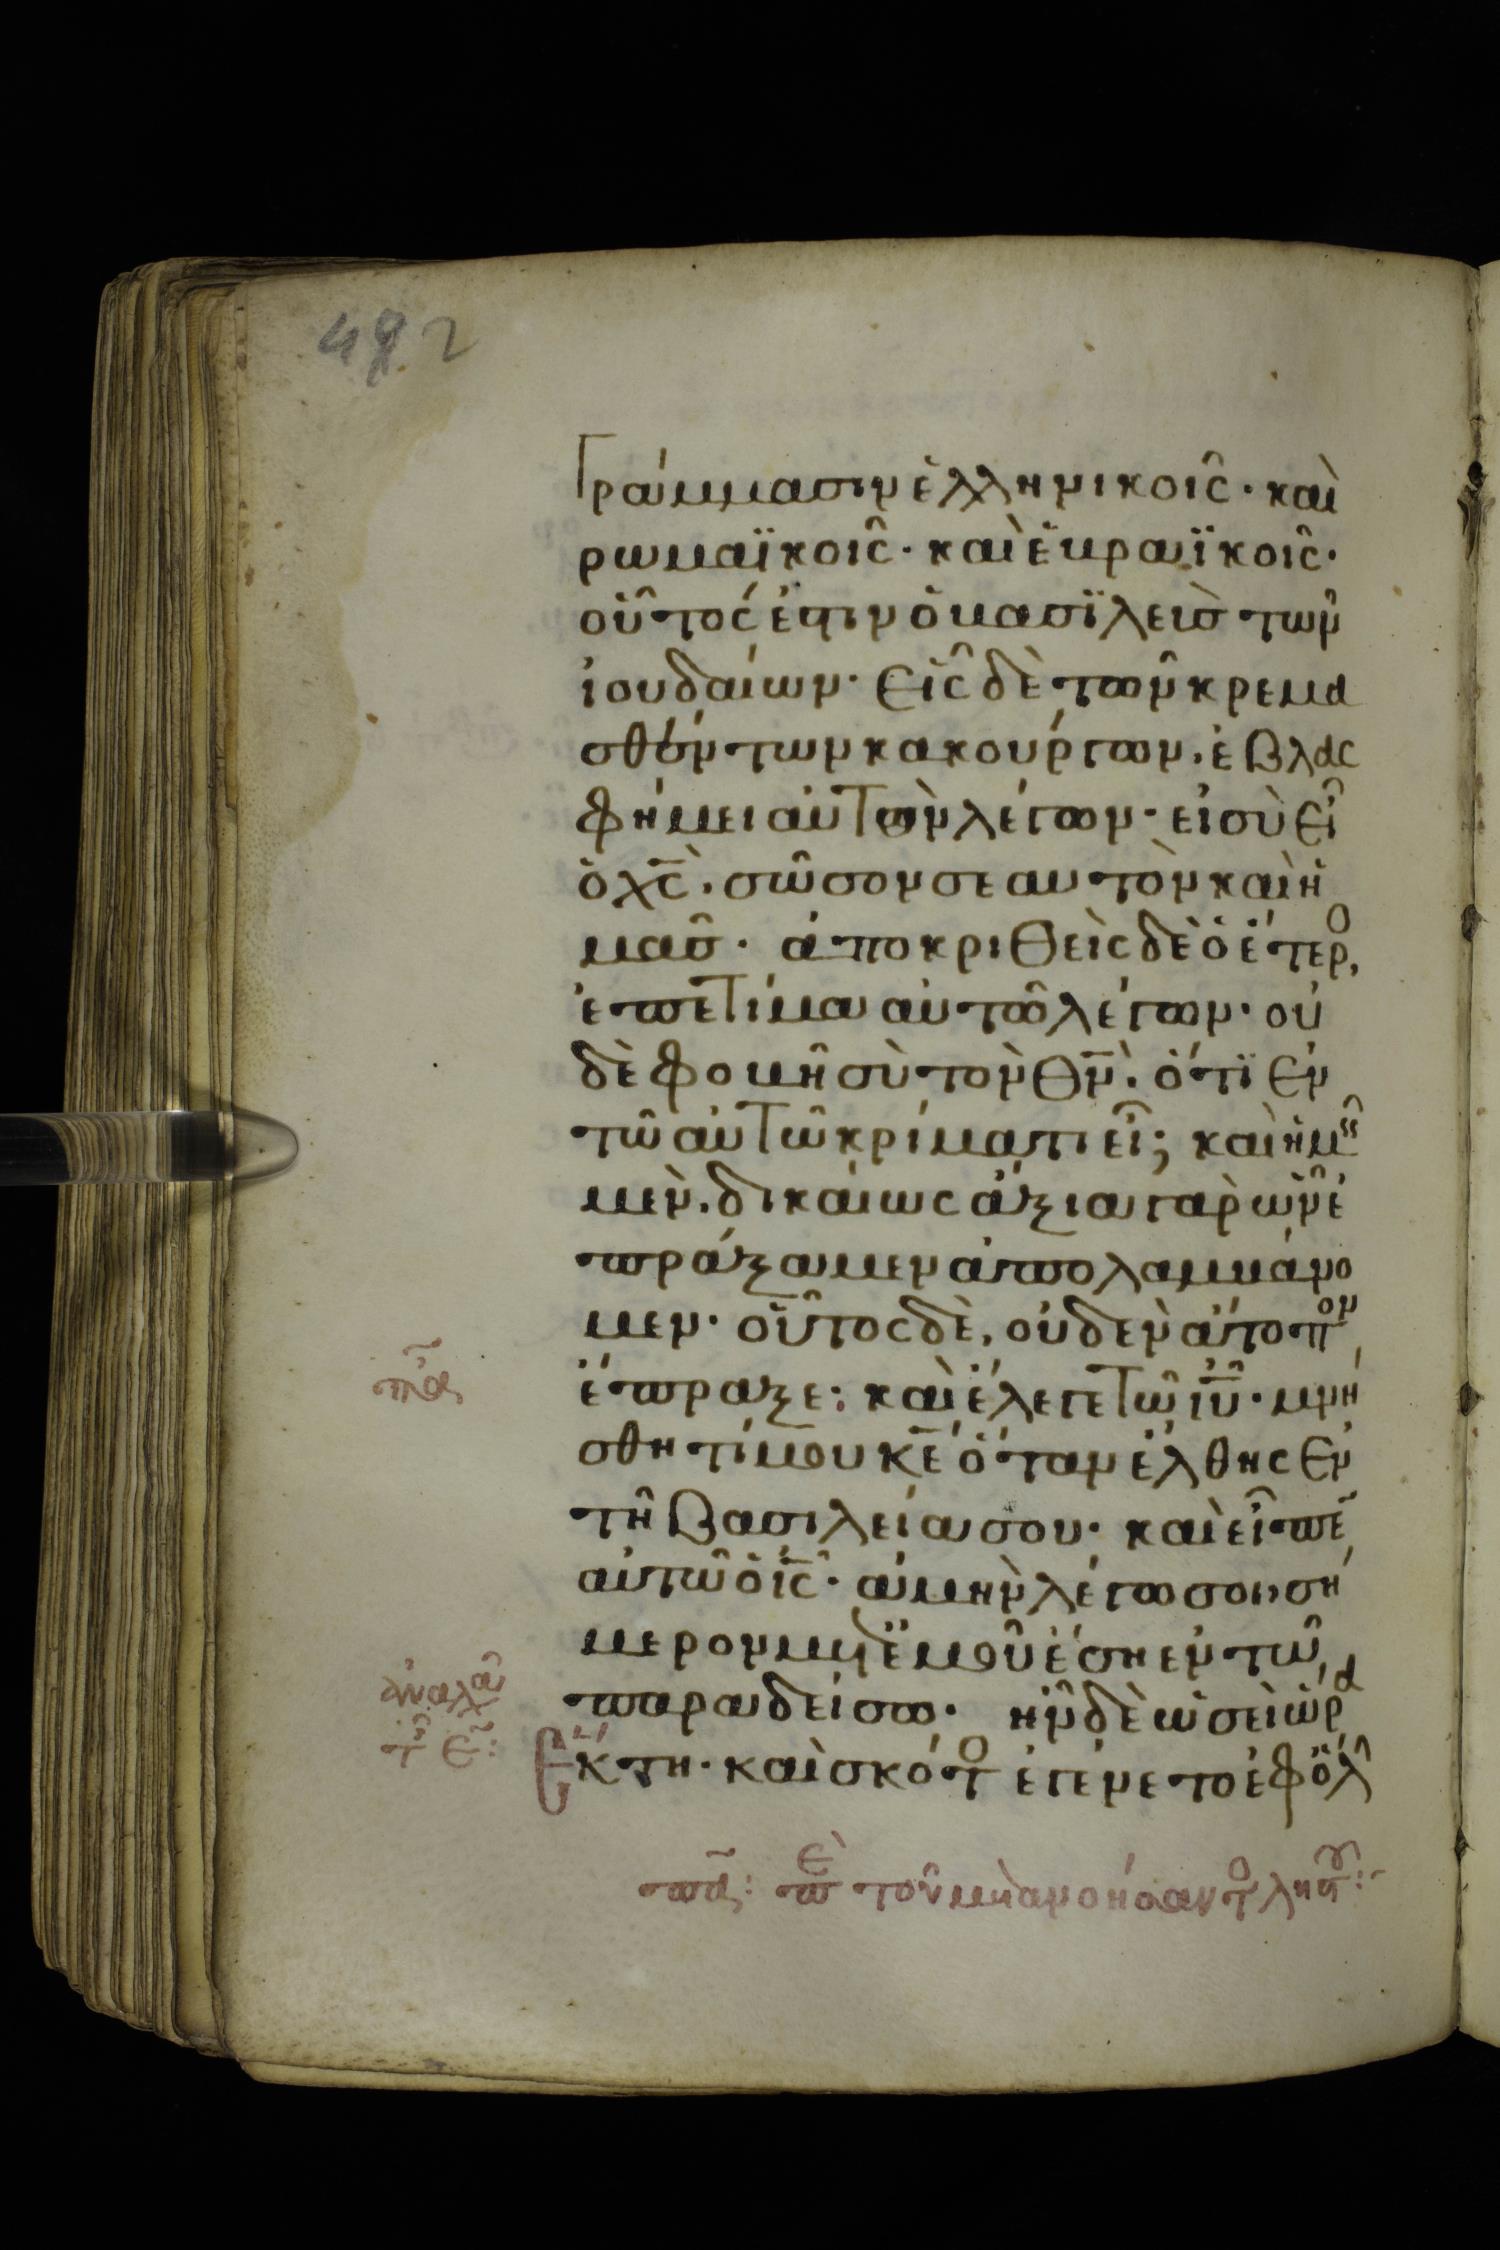 492
Γράμμασιν ἑλληνικοῖς· καὶ
ρωμαϊκοῖς· καὶ ἑβραϊκοῖς·
οὗτός ἐστιν ὁ βασϊλεὺς τῶν
ἰουδαίων· Εἷς δὲ τῶν κρεμα
σθέντων κακούργων, ἐβλασ
φήμει αὐτὸν λέγων· εἰ σὺ εἶ
ὁ χ̅ς̅, σῶσον σεαυτὸν καὶ ἡ
μᾶς· ἀποκριθεὶς δὲ ὁ ἕτερο,
ἐπετίμα αὐτῶ λέγων· οὐ
δὲ φοβῆ σὺ τὸν θ̅ν̅, ὅτϊ ἐν
τῶ αὐτῶ κρίματι εἶ; καὶ ἡμεῖς
μὲν, δικαίως ἄξια γὰρ ὧν ἐ
πράξαμεν ἀπολαμβάνο
μεν· οὗτος δὲ, οὐδὲν ἄτοπον
ἔπραξε: καὶ ἔλεγε τῶ ι̅υ̅· μνή
σθητί μου κ̅ε̅ ὅταν ἔλθης ἐν
τῆ βασιλεία σου· καὶ εἶπεν
αὐτῶ ὁ ι̅ς̅· ἀμὴν λέγω σοι, σή
μερον μετ' ἐμοῦ ἔση ἐν τῶ
παραδείσω· ἦν δὲ ὡσεὶ ὥρα
Ἕκτη· καὶ σκότο ἐγένετο ἐφ ὅλ